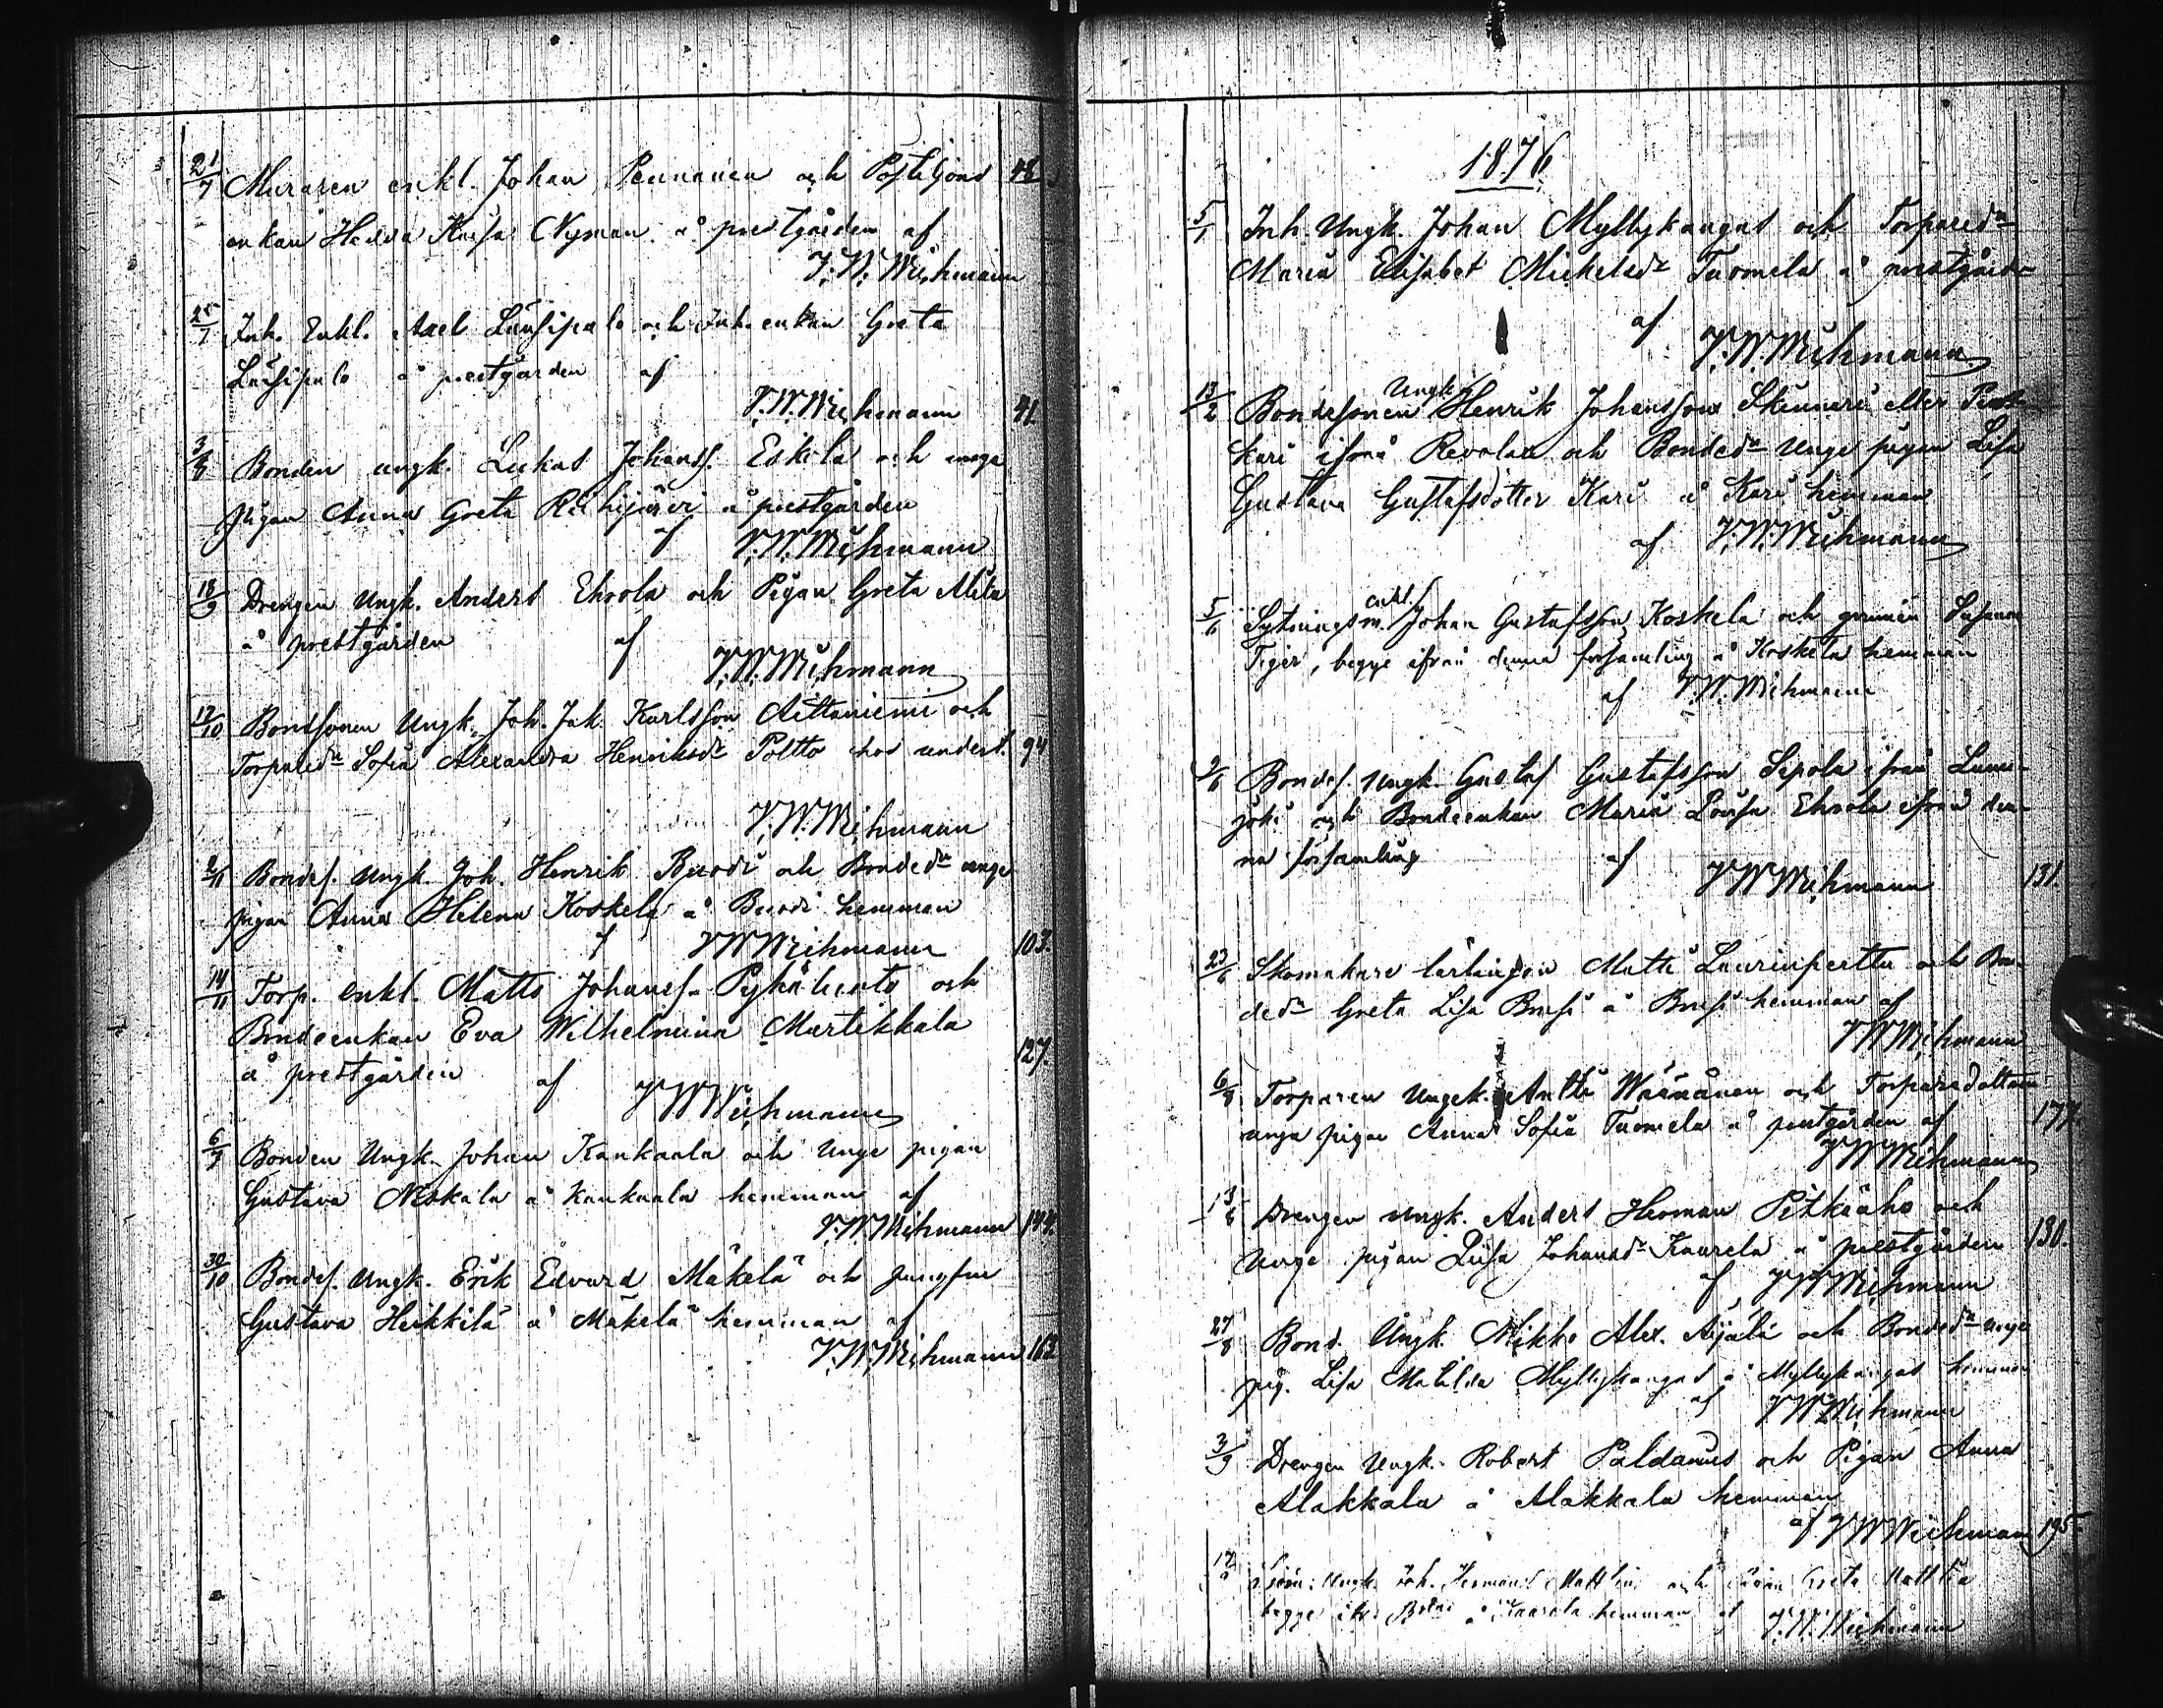 21/7 Muraren enkl. Johan Pennanen och Postiljons 48
enkan Hedda Kajsa Nyman å prestgården af
V. W. Wichmann
25/7 Inh. Enkl. Axel Länsipalo och Inh. enkan Greta
Länsipalo å prestgården af
V. W. Wichmann 41.
3/8 Bonden ungk. Lukas Johanss. Eskola och unga
pigan Anna Greta å prestgården
af V. W. Wichmann
18/9 Drengen Ungk. Anders Ehrola och Pigan Greta
å prestgården af
V. W. Wichmann
17/10 Bondsonen Ungk. Joh. Jak. Karlsson Aittaniemi och
Torpared:n Sofia Alexandra Henriksdr Poltto hos undert. 94
V. W. Wichmann
Bondes. Ungk. Joh. Henrik och Bonded:n unga
pigan Anna Helena Koskela å hemman
af V W Wichmann 103.
14/11 Torp. enkl. Matts Johanss. Pyhäluoto och
Bondeenkan Eva Wilhelmina Martikkala
å prestgården af 127.
V W Wichmann
Bonden Ungk. Johan Kankaala och Unga pigan
Gustava Niskala å Kankaala hemman af
V. W. Wichmann 144.
30/10 Bondes. Ungk. Erik Edvard Mäkelä och Jungfru
Gustava Heikkilä å Mäkelä hemman af
V. W. Wichmann 162
1876
5/1 Inh. Ungk. Johan Myllykangas och Torpared:n
Maria Elisabet Mickelsdr Tuomela å prestgård:n
af V. W. Wichmann
Ungk.
13/2 Bondesonen Henrik Johansson Skinnari eller
kari ifrån Revolax och Bonded:n Unga pigan Lisa
Gustava Gustafsdotter Kari å Kari hemman
af V. W. Wichmann
enkl.
5/6 Sytningsm. Johan Gustafsson Koskela och Susanna
Tiger, begge ifrån denna församling å Koskela hemman
af V. W. Wichmann
9/6 Bondes. Ungk. Gustaf Gustafsson Sipola ifrån Lumi-
joki och Bondeenkan Maria Lovisa Ehrola ifrån den-
na församling af V W Wichmann 131.
23/6 Skomakare lärlingen Matti Laurinperttu och Bon-
ded:n Greta Lisa å hemman af
V W Wichmann
6/8 Torparen Ungk. Antti Wäänänen och Torparedottern
unga pigan Anna Sofia Tuomela å prestgården af 177.
V W Wichmann
13/8 Drengen Ungk. Anders Herman Pitkäaho och
Unga pigan Lisa Johansdr Kaurela å prestgården 130.
af V W Wichmann
27/8 Bond. Ungk. Mikko Alex. Äijälä och Bonded:n unga
pig. Lisa Matilda Myllykangas å Myllykangas hemman
af V W Wichmann
3/9 Drengen Ungk. Robert Paldanius och Pigan Anna
Alakkala å Alakkala hemman
af V W Wichmann 195.
Ungk. Joh. Herman och Greta
begge å hemman af V. W. Wichmann